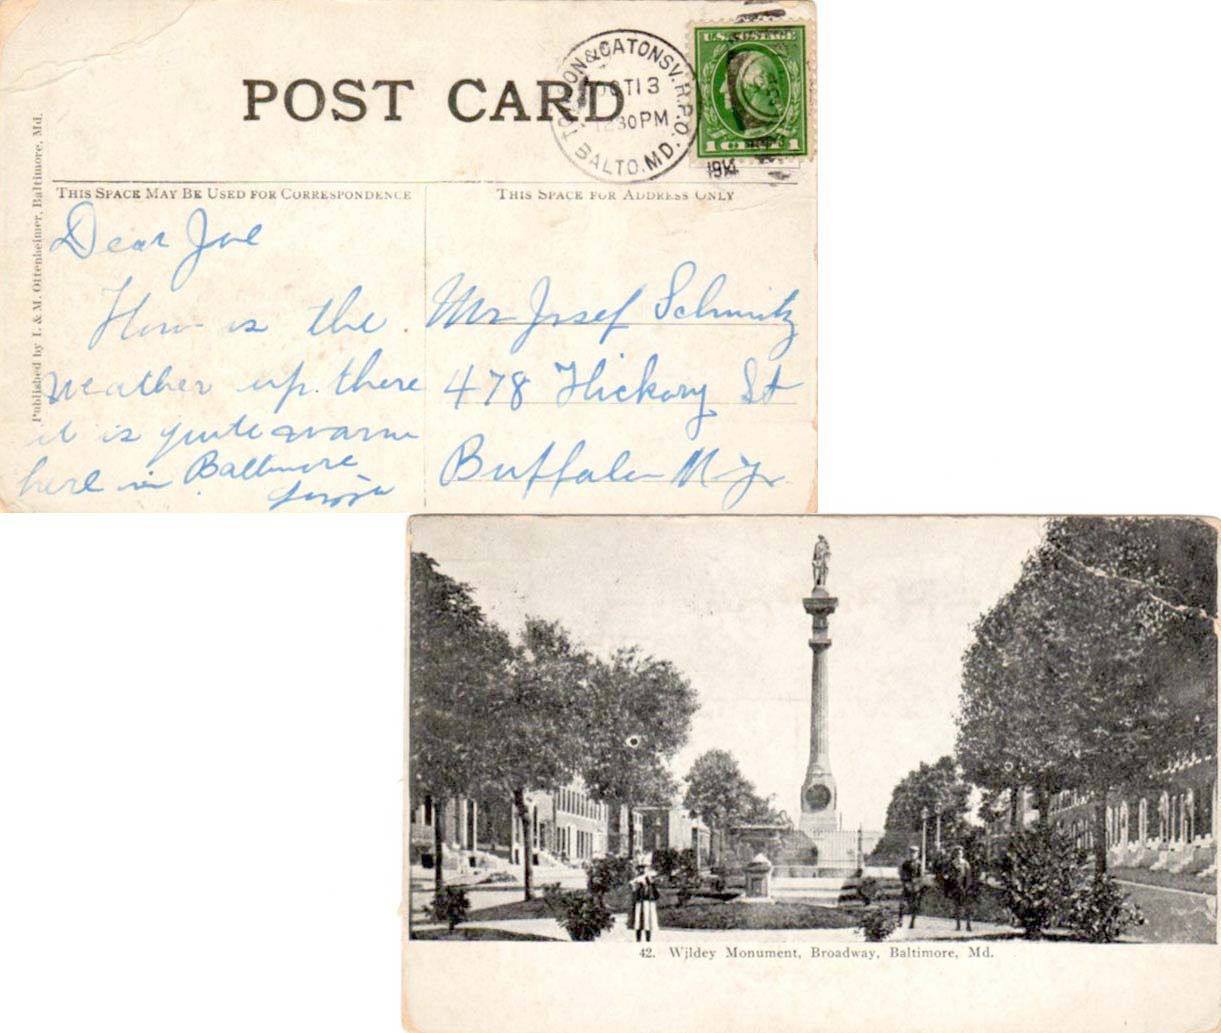 POST CARD
TOWSON & CATONSV. R.P.O.
OCT 13
12 30 PM
1914
BALTO. MD.
U.S. POSTAGE
1 CENT 1
THIS SPACE MAY BE USED FOR CORRESPONDENCE
THIS SPACE FOR ADDRESS ONLY
Published by I. & M. Ottenheimer, Baltimore, Md.
Dear Joe
How is the
weather up there
it is quite warm
here in Baltimore
Mr Josef Schmitz
478 Hickory St
Buffalo N.Y.
42. Wildey Monument, Broadway, Baltimore, Md.